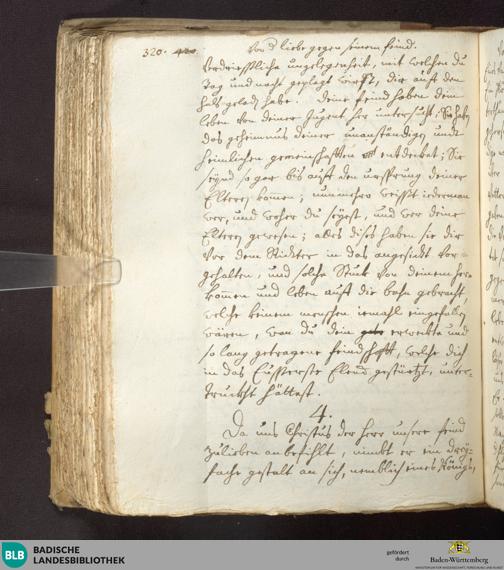 320. Von d liebe gegen seinem feind.
verdriessliche ungelegenheit, mit welchen du
tag und nacht geplagt wirst, dir auf den
hals geladen habe. deine feind haben dein
leben von deiner Jugent her untersucht; Sie haben
das geheimnus deiner unanständigen undt
heimlichen gemeinschafften entdecket; Sie
seynd so gar bis auff den ursprung deiner
Elteren komen; nunmehro weisst iederman
wer, und woher du seyest, und wer deine
Elteren gewesen; alles dises haben sie dir
vor dem Richter in das angesicht vor-
gehalten, und solche stuck von deinem her-
komen und leben auff die bahn gebracht,
welche keinem menschen iemahl eingefallen
wären, wan du dein erweckte und
so lang getragene feindschafft, welche dich
in das Eusserste Elend gestürtzt, unter-
truckht hättest.
4.
Da uns Christus der Herr unsere feind
zulieben anbefihlt, nimbt er ein drey-
fache gestalt an sich, nemblich eines Königs,
BLB BADISCHE
LANDESBIBLIOTHEK
gefördert
durch
Baden-Württemberg